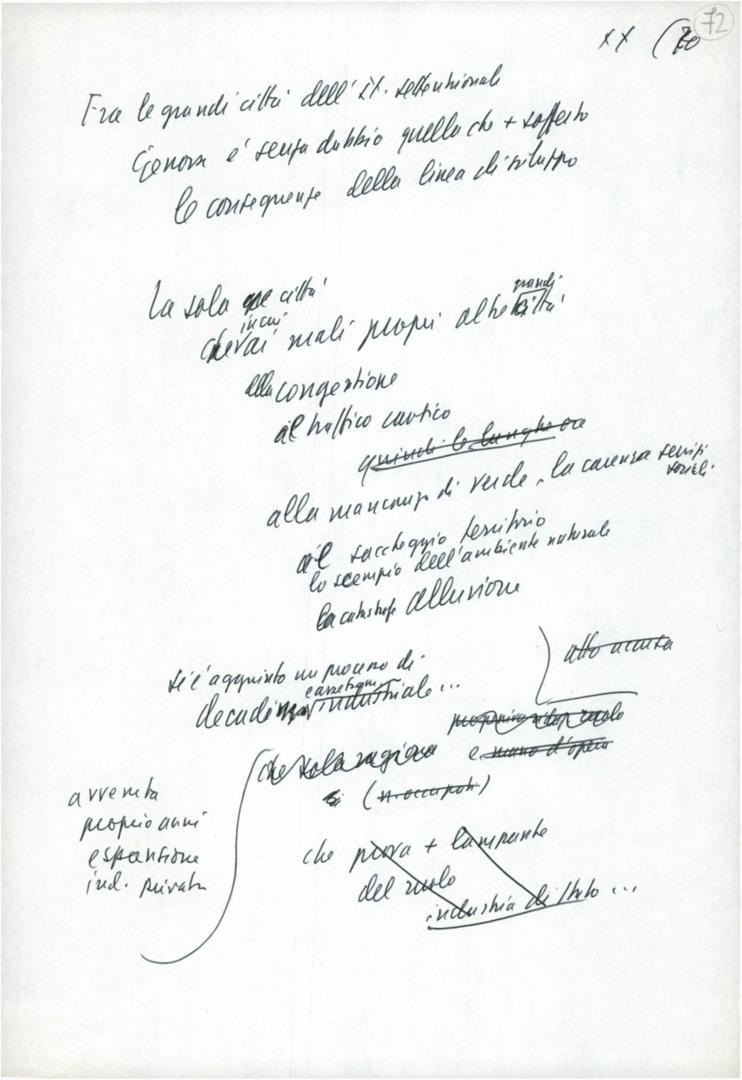 72
xx (70
Fra le grandi città dell'it. settentrionale
Genova è senza dubbio quella che + sofferto
le conseguenze della linea di sviluppo
La sola città
in cui
grandi
ai mali propri altre città
alla congestione
al traffico caotico
quindi le lunghe ore
alla mancanza di verde, la carenza servizi
sociali
il saccheggio territorio
lo scempio dell'ambiente naturale
la catastrofe alluvione
si è aggiunto un processo di
decadenza industriale...
atto accusa
e mano d'opera
che sola ragione
(n. occupati)
avvenuta
proprio anni
espansione
ind. privata
che prova + lampante
del ruolo
industria di Stato ...